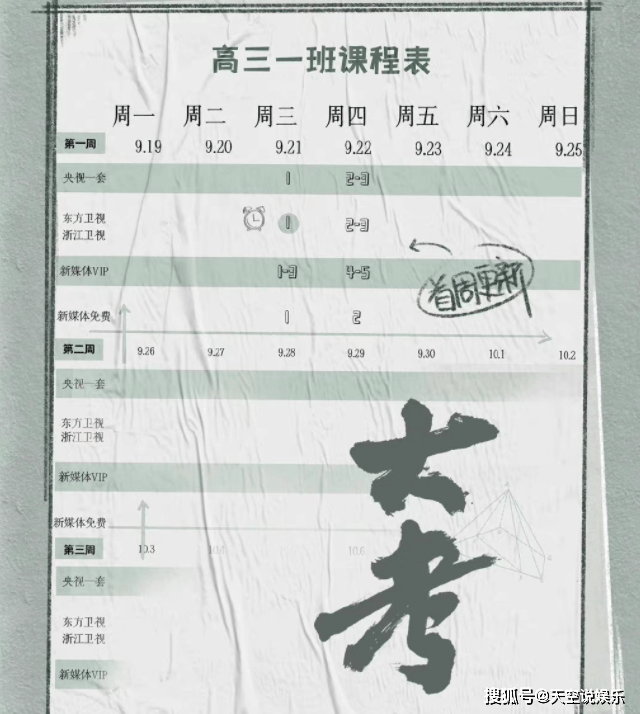 高三一班课程表
周一 周二 周三 周四 周五 周六 周日
第一周 9.19 9.20 9.21 9.22 9.23 9.24 9.25
央视一套 1 2-3
东方卫视 1 2-3
浙江卫视
新媒体VIP 1-3 4-5
首周更新
新媒体免费 1 2
第二周 9.26 9.27 9.28 9.29 9.30 10.1 10.2
央视一套
东方卫视
浙江卫视
新媒体VIP
新媒体免费
第三周 10.3 10.6
央视一套
东方卫视
浙江卫视
新媒体VIP
大考
搜狐号@天空说娱乐